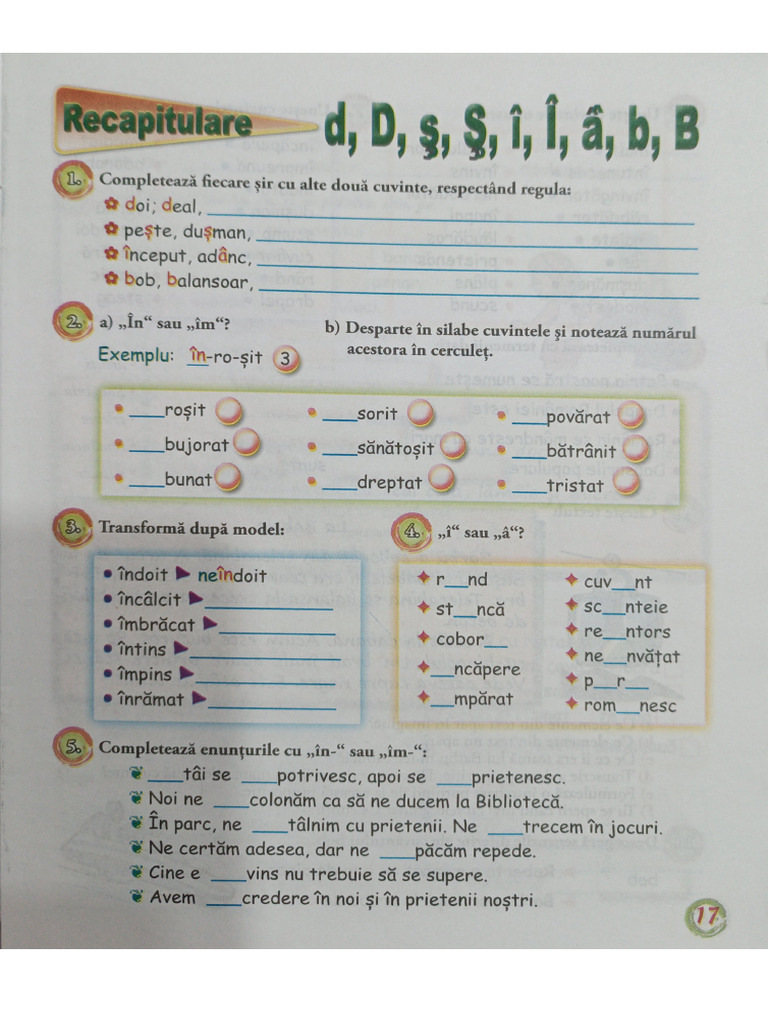 Recapitulare d, D, ş, Ş, î, Î, â, b, B
1. Completează fiecare şir cu alte două cuvinte, respectând regula:
doi; deal, ____
peşte, duşman, ____
început, adânc, ____
bob, balansoar, ____
2. a) „În“ sau „îm“?
b) Desparte în silabe cuvintele şi notează numărul
acestora în cerculeţ.
Exemplu: în-ro-şit 3
____roşit ____sorit ____povărat
____bujorat ____sănătoşit ____bătrânit
____bunat ____dreptat ____tristat
3. Transformă după model:
îndoit neîndoit
încâlcit ____
îmbrăcat ____
întins ____
împins ____
înrămat ____
4. „î“ sau „â“?
r__nd cuv__nt
st__ncă sc__nteie
cobor__ re__ntors
__ncăpere ne__nvăţat
__mpărat p__r__
rom__nesc
5. Completează enunţurile cu „în-“ sau „îm-“:
____tâi se ____potrivesc, apoi se ____prietenesc.
Noi ne ____colonăm ca să ne ducem la Bibliotecă.
În parc, ne ____tâlnim cu prietenii. Ne ____trecem în jocuri.
Ne certăm adesea, dar ne ____păcăm repede.
Cine e ____vins nu trebuie să se supere.
Avem ____credere în noi şi în prietenii noştri.
17